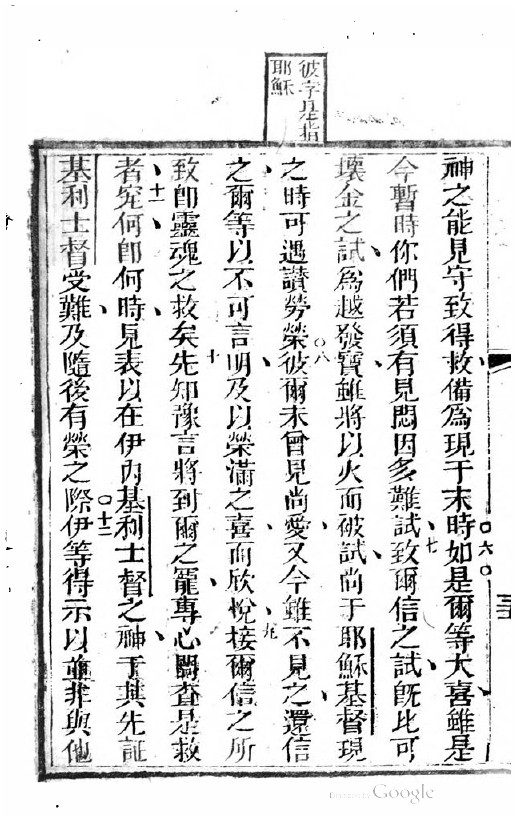 彼字是指
耶穌
神之能見守致得救備為現于末時○六○如是爾等大喜雖是
今暫時你們若須有見悶因多難試七致爾信之試旣比可
壞金之試爲越發寶雖將以火而被試尚于耶穌基督現
之時可遇讚勞榮○八彼爾未曾見尚愛又今雖不見之還信
之爾等以不可言明及以榮滿之喜而欣悅九接爾信之所
致卽靈魂之救矣十先知豫言將到爾之寵專心閱查是救
者十一究何卽何時見表以在伊內基利士督之神于其先証
基利士督受難及隨後有榮之際○十二伊等得示以並非與他
三
Digitized by Google